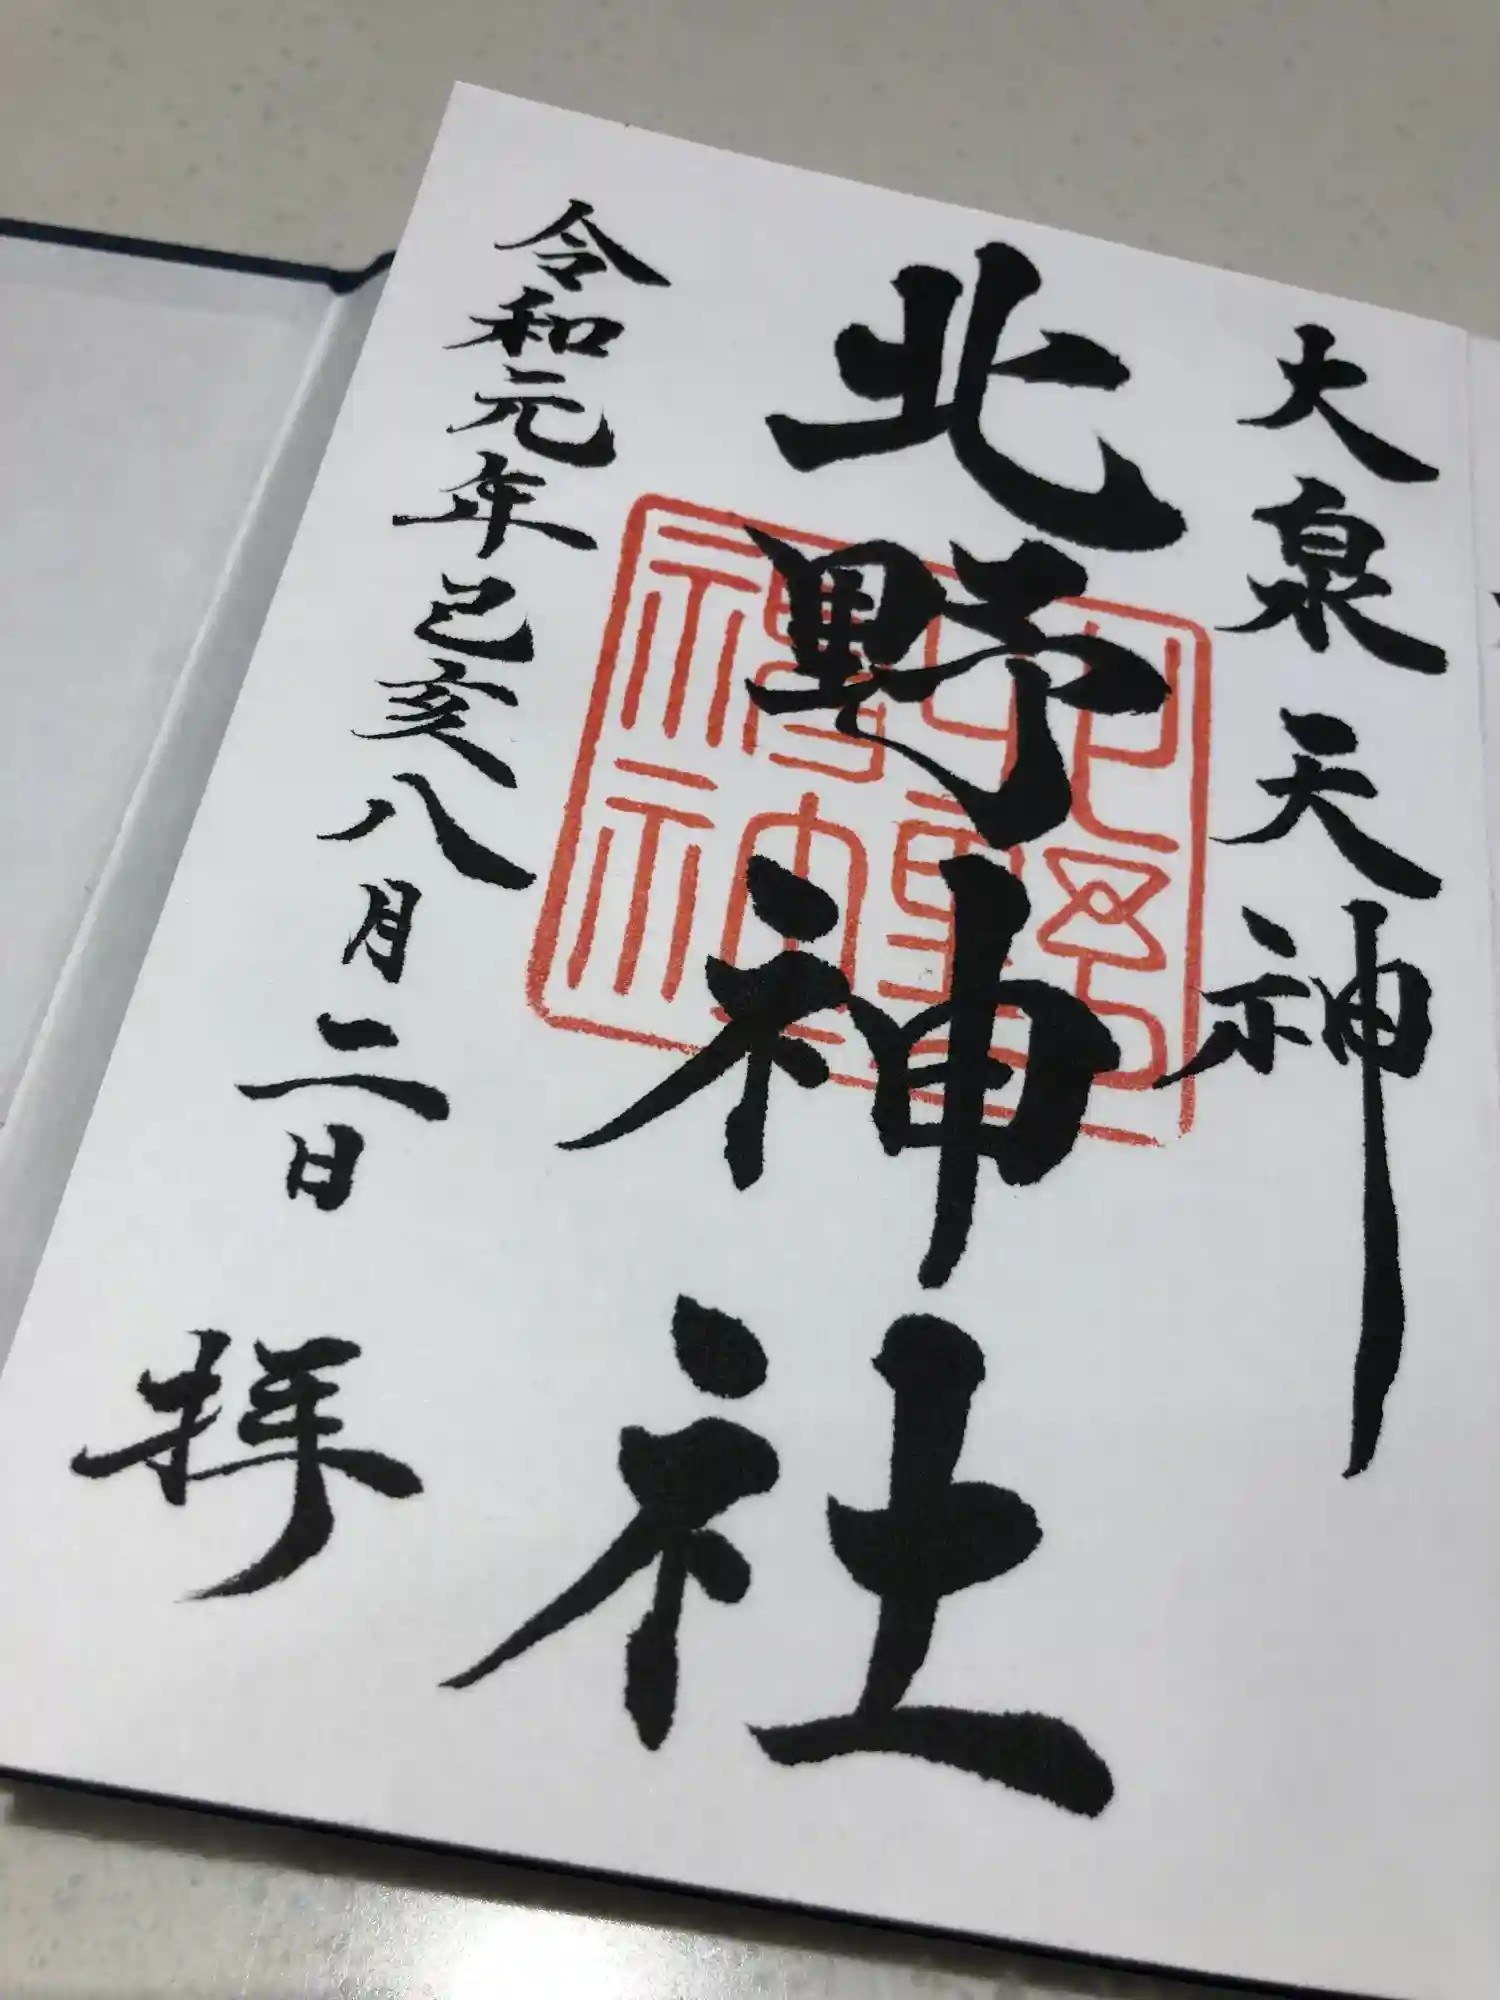 大泉天神
北野神社
北野神社
令和元年己亥八月二日
拝